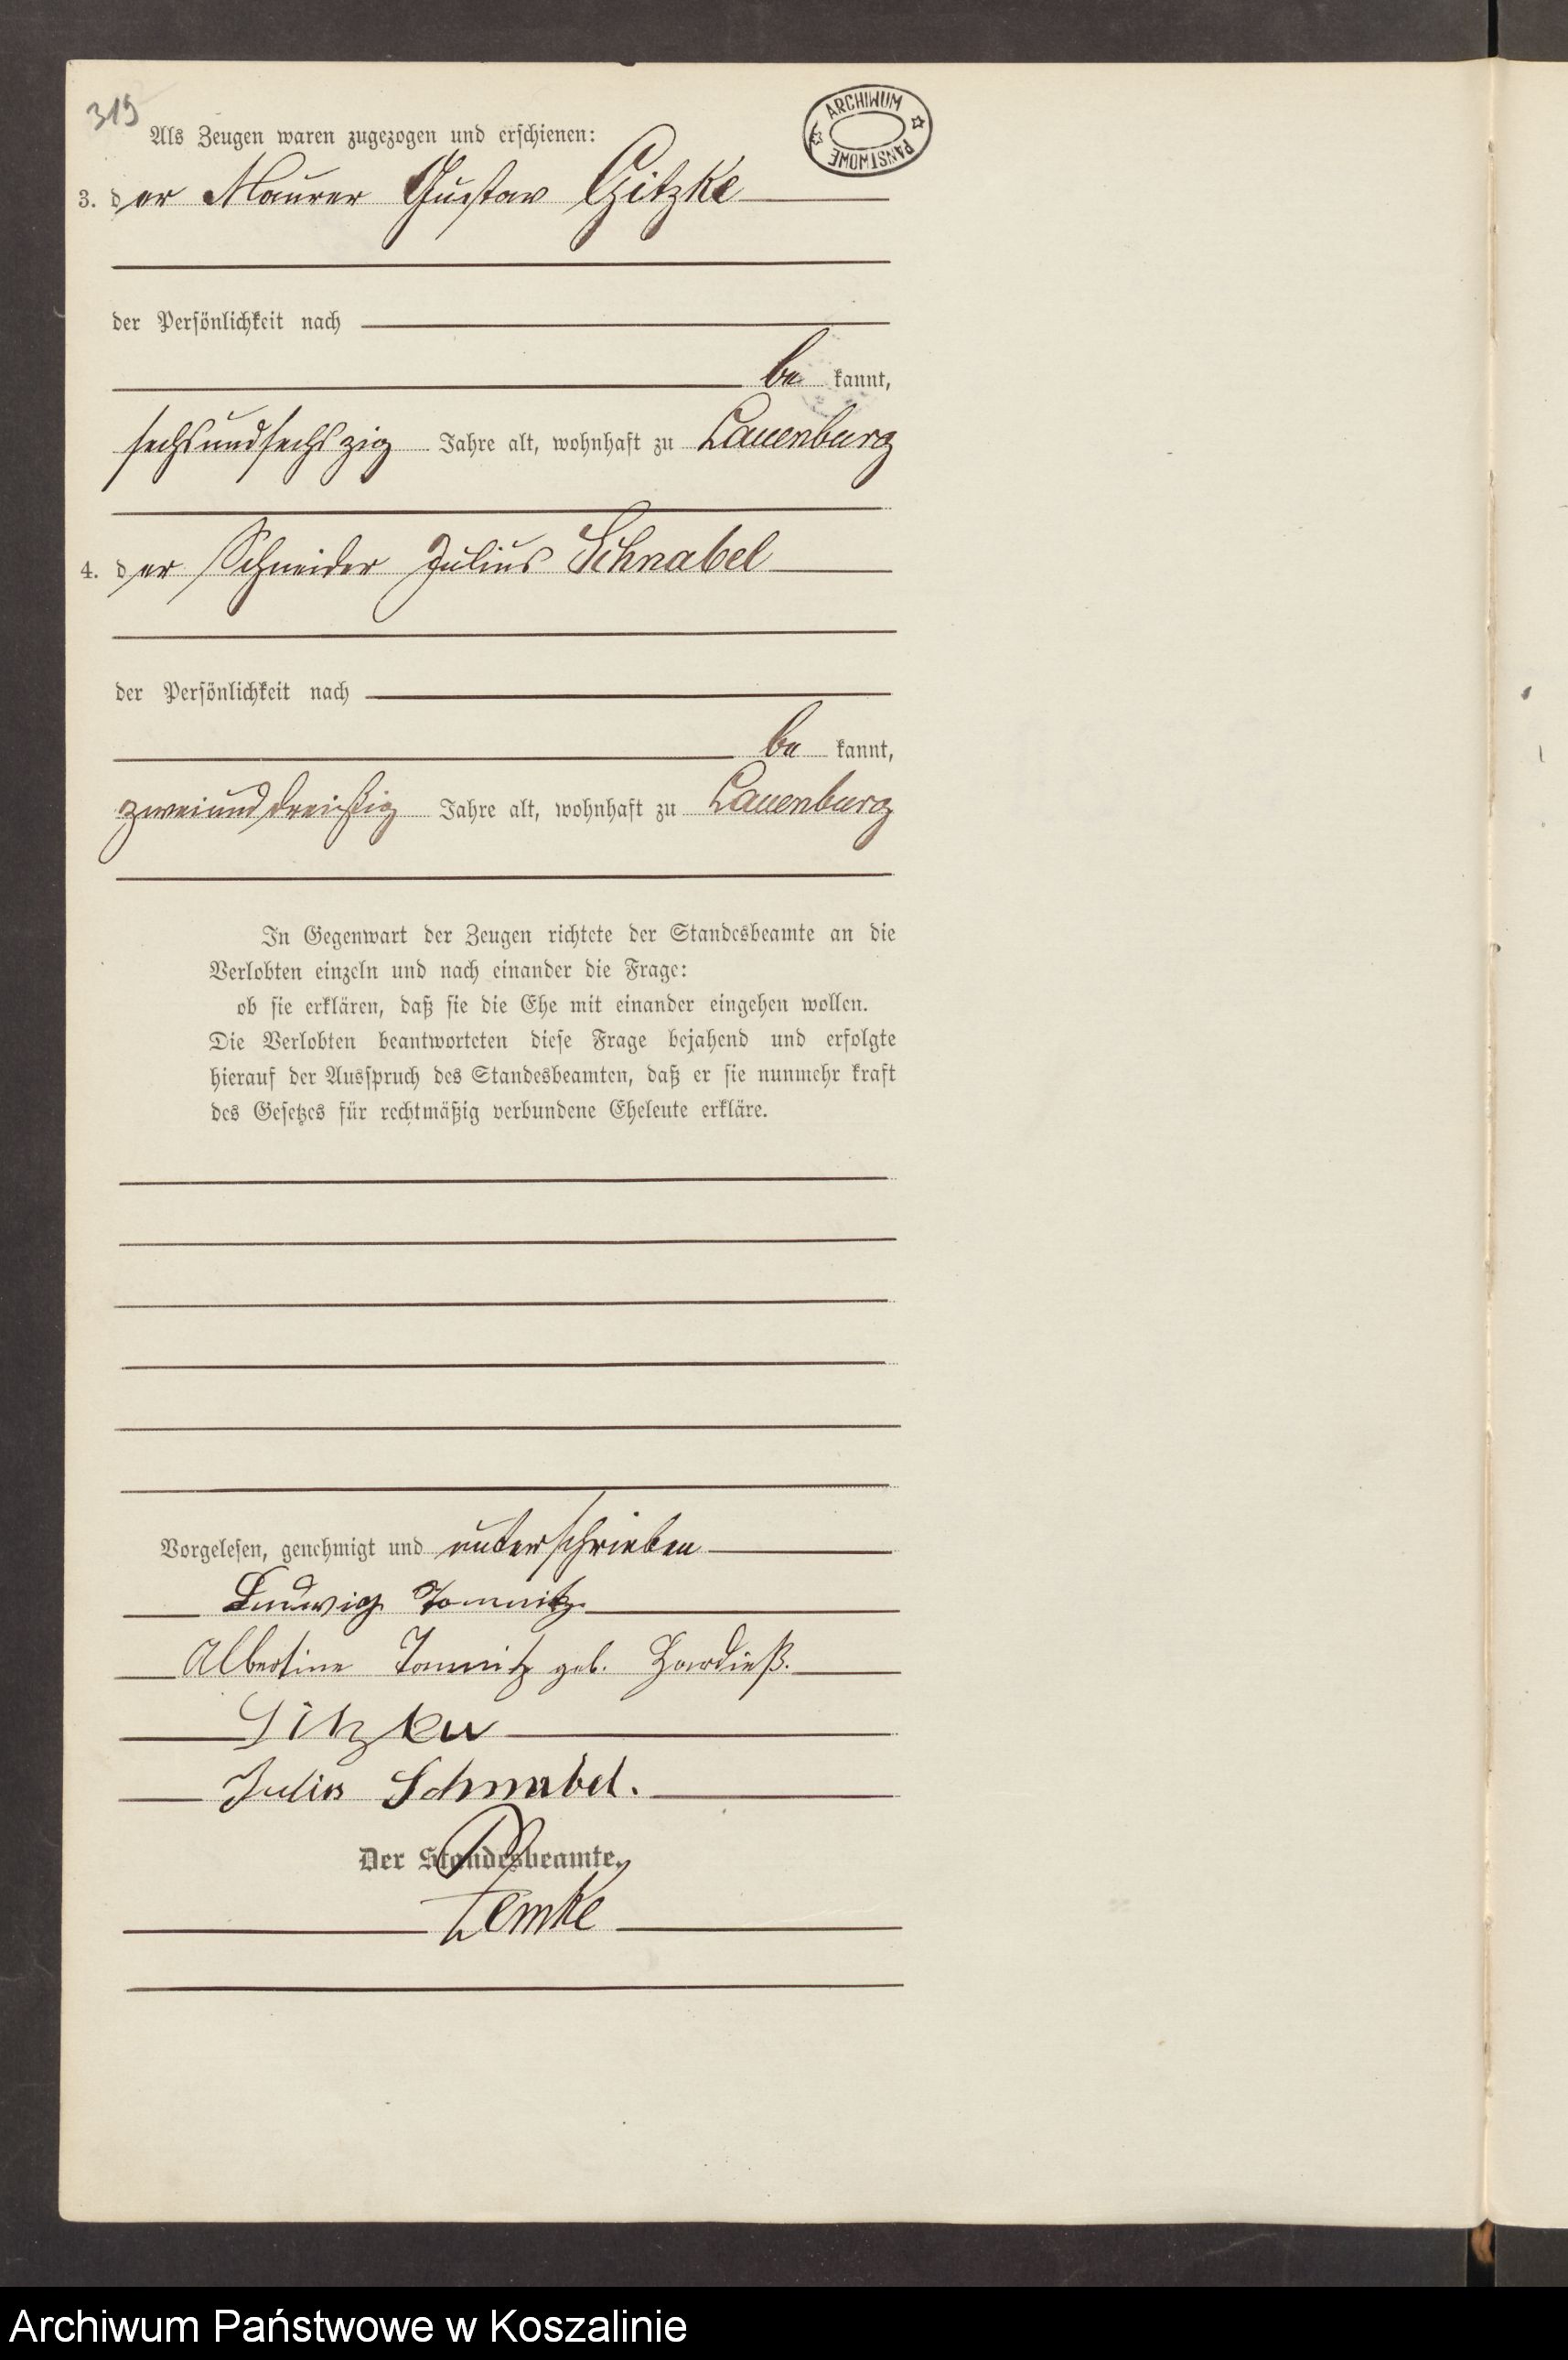 319
ARCHIWUM PAŃSTWOWE
Als Zeugen waren zugezogen und erschienen:
3. der Maurer Gustav Gitzke
der Persönlichkeit nach
be kannt,
sechsundsechszig Jahre alt, wohnhaft zu Lauenburg
4. der Schneider Julius Schnabel
der Persönlichkeit nach
be kannt,
zweiunddreißig Jahre alt, wohnhaft zu Lauenburg
In Gegenwart der Zeugen richtete der Standesbeamte an die
Verlobten einzeln und nach einander die Frage:
ob sie erklären, daß sie die Ehe mit einander eingehen wollen.
Die Verlobten beantworteten diese Frage bejahend und erfolgte
hierauf der Ausspruch des Standesbeamten, daß er sie nunmehr kraft
des Gesetzes für rechtmäßig verbundene Eheleute erkläre.
Vorgelesen, genehmigt und unterschrieben
Ludwig Tomnitz
Albertine Tomnitz geb.
Gitzke
Julius Schnabel.
Der Standesbeamte.
Lemke
Archiwum Państwowe w Koszalinie